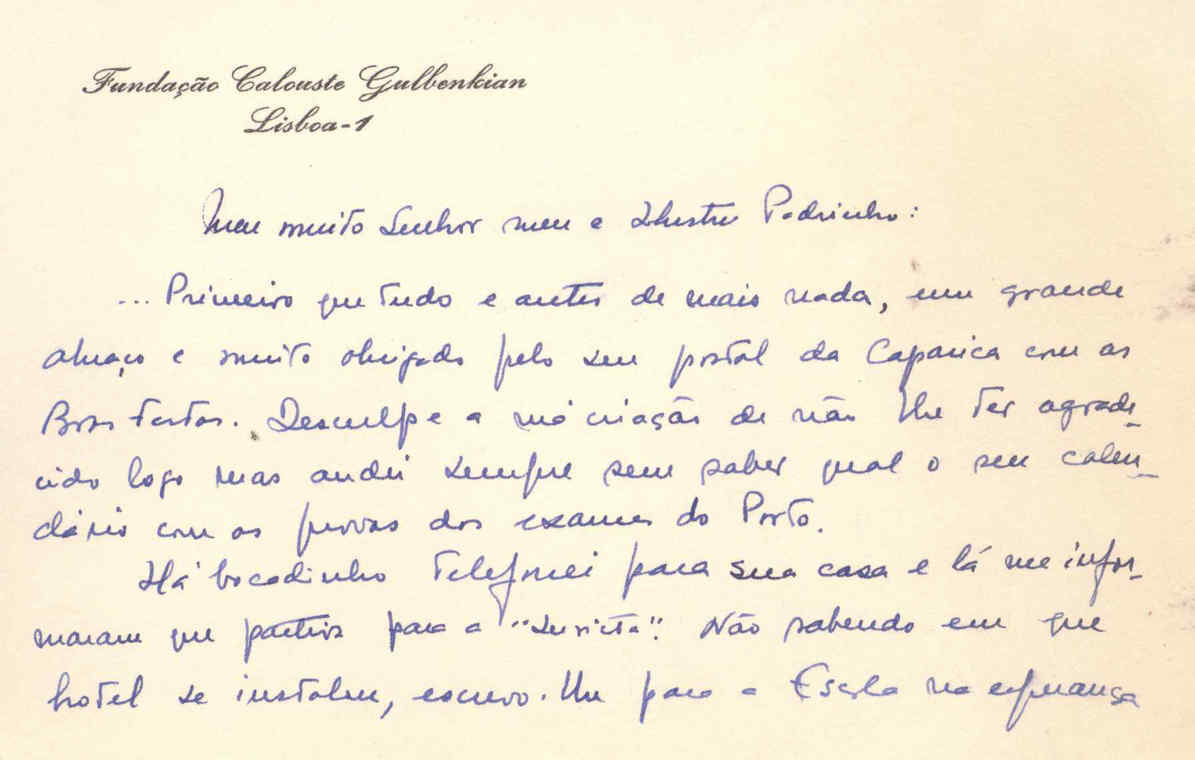 Fundação Calouste Gulbenkian
Lisboa-1
Meu muito Senhor meu e Ilustre Padrinho:
... Primeiro que tudo e antes de mais nada, um grande
abraço e muito obrigado pelo seu postal da Caparica com as
Boas Festas. Desculpe a má criação de não lhe ter agrade_
cido logo mas andei sempre sem saber qual o seu calen_
dário com as provas dos exames do Porto.
Há bocadinho telefonei para sua casa e lá me infor-
maram que partira para a Não sabendo em que
hotel se instalou, escrevo-lhe para a Escola na esperança